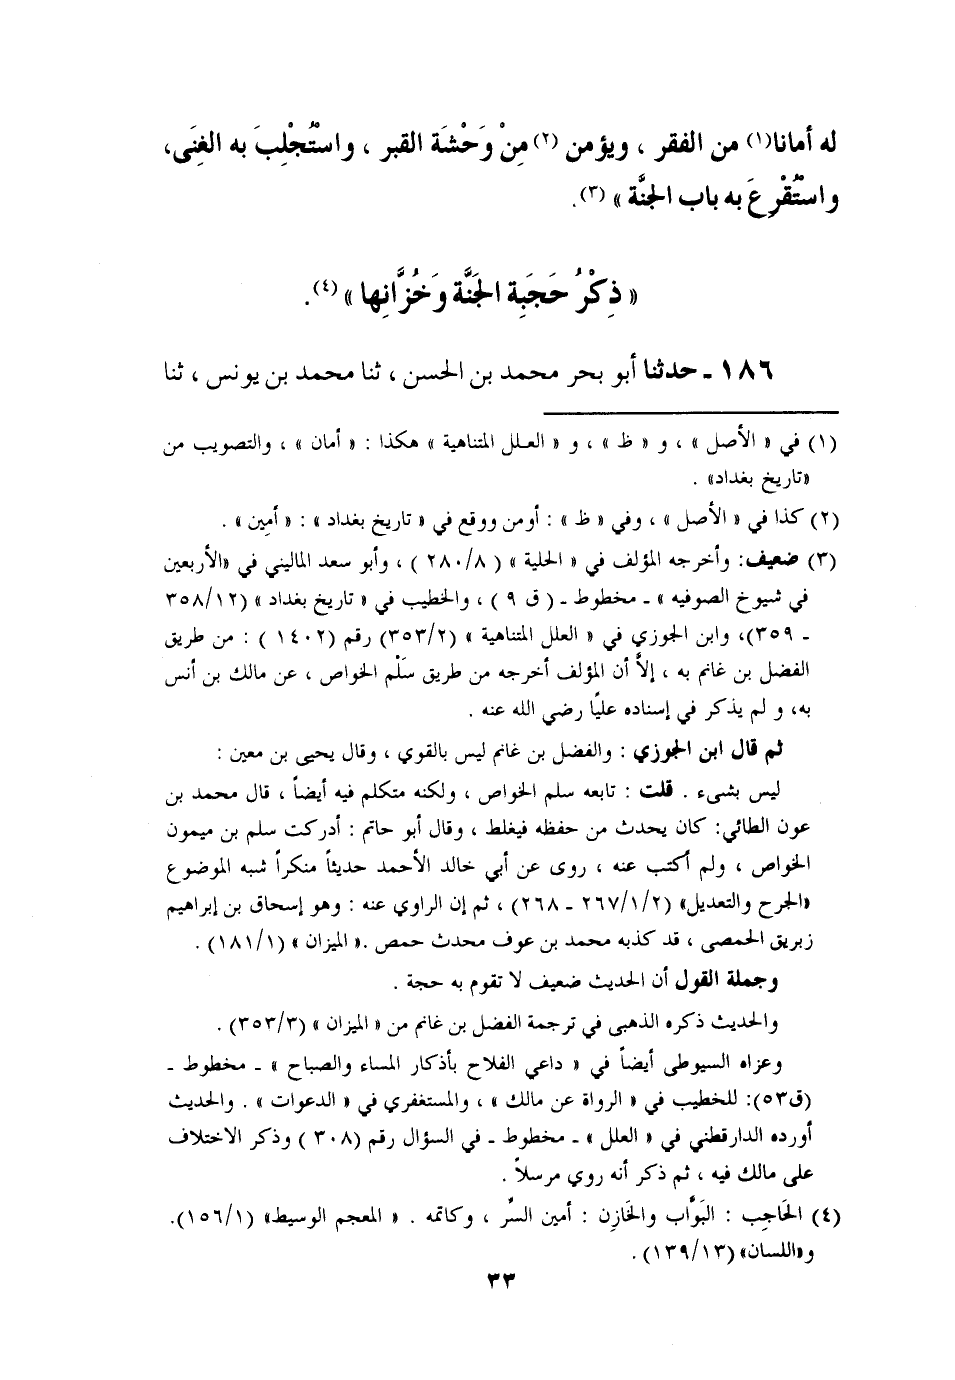 له أمانا(١) من الفقر ، ويؤمن (٢) مِنْ وَحْشَة القبر ، واسْتُجْلِبَ به الغِنَى،
واسْتُقْرِعَ به باب الجنَّة » (٣).
« ذِكْرُ حَجَبِة الجَنَّة وَخُزَّانِها » (٤).
١٨٦ ـ حدثنا أبو بحر محمد بن الحسن ، ثنا محمد بن يونس ، ثنا
(١) في « الأصل » ، و « ظ » ، و « العلل المتناهية » هكذا : « أمان » ، والتصويب من
«تاريخ بغداد» .
(٢) كذا في « الأصل » ، وفي « ظ » : أومن ووقع في « تاريخ بغداد » : « أمِين » .
(٣) ضعيف: وأخرجه المؤلف في « الحلية » ( ٢٨٠/٨ ) ، وأبو سعد الماليني في «الأربعين
في شيوخ الصوفيه » ـ مخطوط ـ ( ق ٩ ) ، والخطيب في « تاريخ بغداد » (٣٥٨/١٢
ـ ٣٥٩)، وابن الجوزي في « العلل المتناهية » (٣٥٣/٢) رقم (١٤٠٢ ) : من طريق
الفضل بن غانم به ، إلاَّ أن المؤلف أخرجه من طريق سَلْم الخواص ، عن مالك بن أنس
به، و لم يذكر في إسناده عليًا رضي الله عنه .
ثم قال ابن الجوزي : والفضل بن غانم ليس بالقوي ، وقال يحيى بن معين :
ليس بشىء . قلت : تابعه سلم الخواص ، ولكنه متكلم فيه أيضاً ، قال محمد بن
عون الطائي: كان يحدث من حفظه فيغلط ، وقال أبو حاتم : أدركت سلم بن ميمون
الخواص ، ولم أكتب عنه ، روى عن أبي خالد الأحمد حديثاً منكراً شبه الموضوع
«الجرح والتعديل» (٢٦٧/١/٢ ـ ٢٦٨) ، ثم إن الراوي عنه : وهو إسحاق بن إبراهيم
زبريق الحمصى ، قد كذبه محمد بن عوف محدث حمص .« الميزان » (١٨١/١) .
وجملة القول أن الحديث ضعيف لا تقوم به حجة .
والحديث ذكره الذهبى في ترجمة الفضل بن غانم من « الميزان » (٣٥٣/٣) .
وعزاه السيوطى أيضاً في « داعي الفلاح بأذكار المساء والصباح » ـ مخطوط ـ
(ق٥٣): للخطيب في « الرواة عن مالك » ، والمستغفري في « الدعوات » . والحديث
أورده الدارقطني في « العلل » ـ مخطوط ـ في السؤال رقم (٣٠٨ ) وذكر الاختلاف
على مالك فيه ، ثم ذكر أنه روي مرسلاً .
(٤) الحَاجِب : البَوَّاب والخَازِن : أمين السرِّ ، وكاتمه . « المعجم الوسيط» (١٥٦/١).
و«اللسان» (١٣٩/١٣) .
٣٣